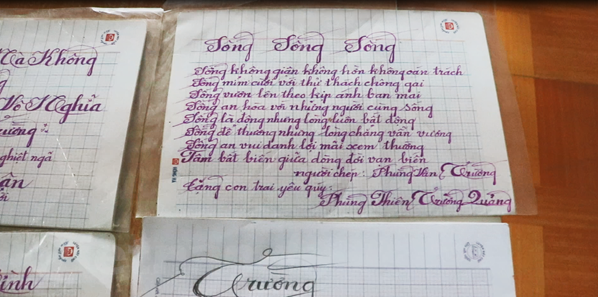 Ma Không
Vô Nghĩa
nghiệt ngã
Sống Sống Sống
Sống không giận không hờn không oán trách
Sống mỉm cười với thử thách chông gai
Sống vươn lên theo kịp ánh ban mai
Sống an hòa với những người cùng sống
Sống là động nhưng lòng luôn bất động
Sống để thương nhưng lòng chẳng vấn vương
Sống an vui danh lợi mãi xem thường
Tâm bất biến giữa dòng đời vạn biến
người chép: Phùng Văn Trường
tặng con trai yêu quý:
Phùng Thiên Trường Quảng
Trường